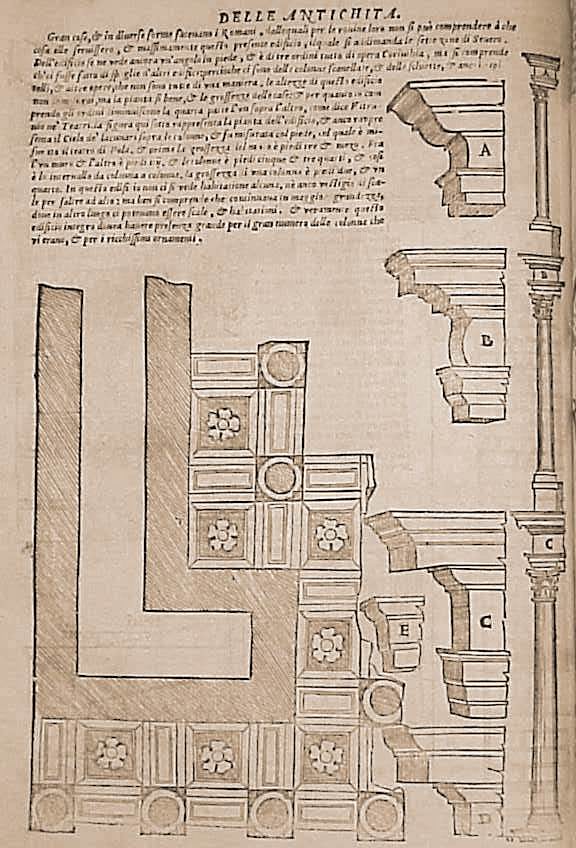 DELLE ANTICHITA.
Gran case, & in diuerse forme faceuano i Romani, dallequali per le rouine loro non si può comprendere à che
cosa elle seruissero, & massimamente questo presente edificio, ilquale si adimanda le sette zone di Seuero.
Dell'edificio se ne vede ancora vn'angolo in piede, & è di tre ordini tutto di opera Corinthia, ma si comprende
ch'ei fusse fatto di spoglie d'altri edificij: perciochè ci sono delle colonne scanellate, & delle schiette, & anco i capi
telli, & altre opere, che non sono tutte di vna maniera, le altezze di questo edificio
non ma la pianta si bene, & le grossezze delle & per quanto io com
prendo gli ordini diminuiscono la quarta parte l'un sopra l'altro, come dice Vitru
uio ne' Teatri. la figura qui sotto rappresenta la pianta dell'edificio, & anco rappre
senta il Cielo de' lacunari sopra le colonne, & fu misurata col piede, col quale è mi-
surato il teatro di Pola, & prima la grossezza del muro è piedi tre & mezo, fra
l'vn muro & l'altro è piedi & le colonne è piedi cinque & tre quarti, & così
è lo interuallo da colonna a colonna, la grossezza d'una colonna è piedi due, & vn
quarto. In questo edificio non ci si vede habitatione alcuna, nè anco vestigij di sca-
le per salire ad alto: ma ben si comprende che continuaua in maggior grandezza,
doue in altro luogo si poteuano essere scale, & habitationi. & veramente questo
edificio integro doueua hauere presenza grande per il gran numero delle colonne che
vi erano, & per i ricchissimi ornamenti.
A
B
B
C
C
E
D